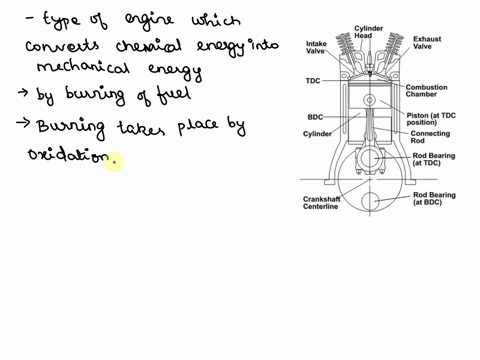 - type of engine which
converts chemical energy into
mechanical energy
→ by burring of fuel
→ Burring takes place by
oxidation.
Cylinder
Head
Intake
Valve
Exhaust
Valve
TDC
Combustion
Chamber
BDC
Piston (at TDC
position)
Cylinder
Connecting
Rod
Rod Bearing
(at TDC)
Crankshaft
Centerline
Rod Bearing
(at BDC)